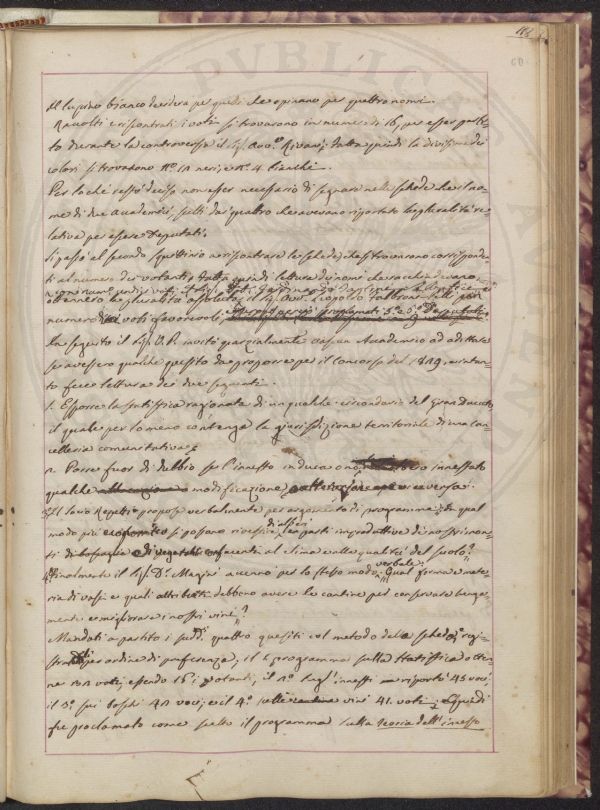 118
60
Al lupino bianco desidera per quelli che opinano per quattro nomi.
Raccolti e riscontrati i voti si trovarono in numero di 16, per esser partito
durante la controversia il Sig. Avv.o Rivani; fatta quindi la divisione dei
colori si trovarono N.o 12 neri, e N.o 4 bianchi.
Per lo chè restò deciso non esser necessario di segnare nelle schede che il nome
di due Accademici, scelti dai quattro che avevano riportato la pluralità relativa
per essere Deputati.
Si passò al secondo squittinio e riscontrare le schede che si trovarono corrispondenti
al numero dei votanti e fatta quindi lettura dei nomi che racchiudevano,
ottennero la pluralità assoluta, il Sig. Avv. Leopoldo
numero voti favorevoli,
In seguito il Sig. V. P. invitò parzialmente ciascun Accademico ad additare
se avessero qualche quesito da proporre per il Concorso del 1829, e intanto
fece lettura dei due seguenti.
1. Esporre la statistica ragionata di un qualche circondario del Gran Ducato,
il quale per lo meno contenga la giurisdizione territoriale di una cancelleria
comunitativa.
2. Porre fuor di dubbio se l'innesto induca o no innestato
qualche modificazione, e viceversa.
3. Il Socio Repetti propose verbalmente per argomento di programma: In qual
modo più economico si possono rivestire di alberi le parti improduttive dei nostri monti
di boscaglia e di vegetabili confacenti al clima e alla qualità del suolo?
4. Finalmente il Sig. D.r Magini accennò per lo stesso modo verbale: Qual forma e materia
di vasi e quali attributi debbono avere le cantine per conservare lungamente
e migliorare i nostri vini?
Mandati a partito i sudd.i quattro quesiti col metodo delle schede, registrati
per ordine di preferenza, il 1.o programma sulla Statistica ottenne
32 voti; essendo 16 i votanti, il 2.o sugl'innesti riportò 45 voci,
il 3.o sui boschi 42 voci; e il 4.o sulle vini 41. voti; e quindi
fu proclamato come scelto il programma sulla teoria dell'innesto